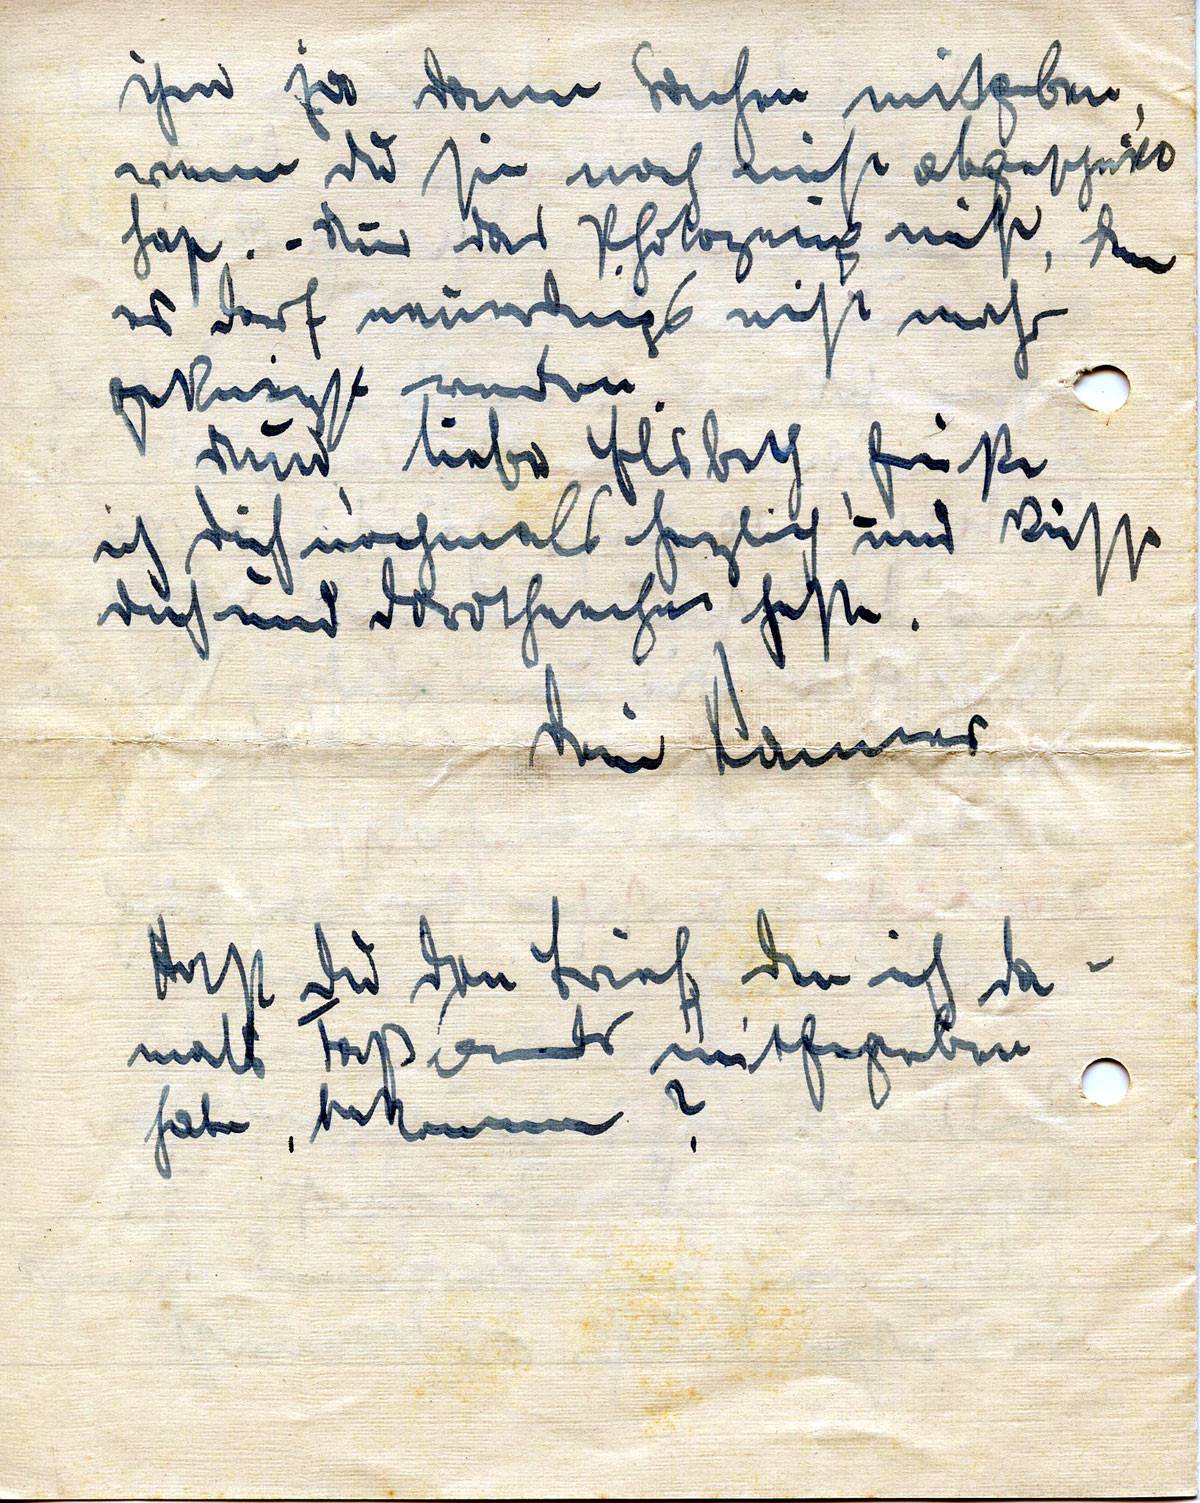 ihm ja dann Sachen mitgeben,
wenn du sie noch nicht abgeschickt
hast. - Nur das Photozeug nicht, denn
es darf neuerdings nicht mehr
geknipst werden.
Nun, liebe Elsbeth, grüße
ich dich nochmals herzlich und küsse
dich und Dorotheechen feste.
Dein Hannes
Hast Du den Brief, den ich da-
mals mitgegeben
habe, bekommen?